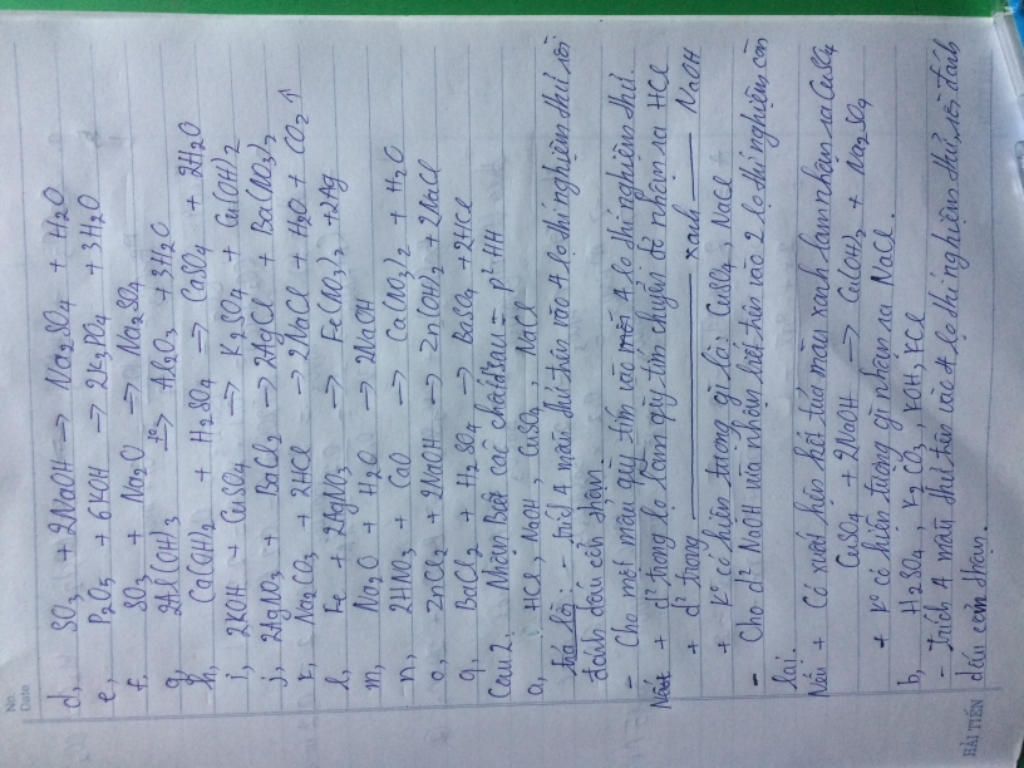 No.
Date
d, SO3 + 2NaOH → Na2SO4 + H2O
e, P2O5 + 6KOH → 2K3PO4 + 3H2O
f, SO3 + Na2O → Na2SO4
g, 2Al(OH)3 t° → Al2O3 + 3H2O
h, Ca(OH)2 + H2SO4 → CaSO4 + 2H2O
i, 2KOH + CuSO4 → K2SO4 + Cu(OH)2
j, 2AgNO3 + BaCl2 → 2AgCl + Ba(NO3)2
k, Na2CO3 + 2HCl → 2NaCl + H2O + CO2 ↑
l, Fe + 2AgNO3 → Fe(NO3)2 + 2Ag
m, Na2O + H2O → 2NaOH
n, 2HNO3 + CaO → Ca(NO3)2 + H2O
o, ZnCl2 + 2NaOH → Zn(OH)2 + 2NaCl
q, BaCl2 + H2SO4 → BaSO4 + 2HCl
Câu 2. Nhận Biết các chất sau = p² HH
a, HCl, NaOH, CuSO4, NaCl
trả lời: - trích 4 mẫu thử trên vào 4 lọ thí nghiệm thử rồi
đánh dấu cẩn thận.
- Cho một mẫu quỳ tím vào 4 lọ thí nghiệm thử.
Nếu + d² trong lọ làm quỳ tím chuyển đỏ nhận ra HCl
+ d² trong xanh NaOH
+ K° có hiện tượng gì là: CuSO4, NaCl
- Cho d² NaOH vừa nhận biết trên vào 2 lọ thí nghiệm còn
lại.
Nếu + Có xuất hiện kết tủa màu xanh lam nhận ra CuSO4
CuSO4 + 2NaOH → Cu(OH)2 + Na2SO4
+ K° có hiện tượng gì nhận ra NaCl.
b, H2SO4, K2CO3, KOH, KCl
- trích 4 mẫu thử trên vào 4 lọ thí nghiệm thử, rồi đánh
dấu cẩn thận.
HẢI TIẾN